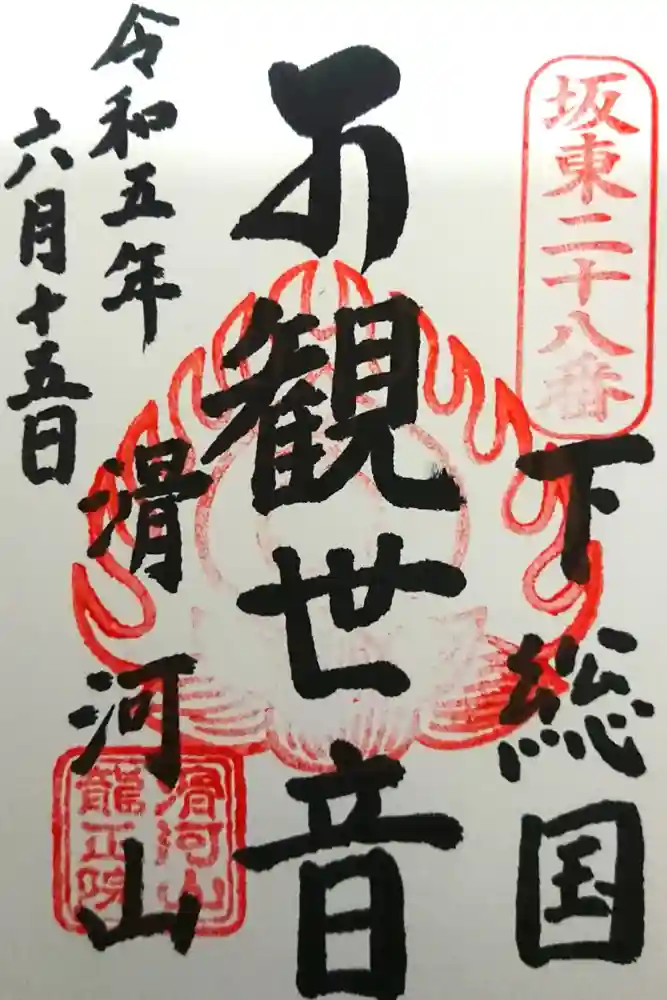 坂東二十八番
下総国
観世音
令和五年
六月十五日
滑河山
滑河山
龍正院